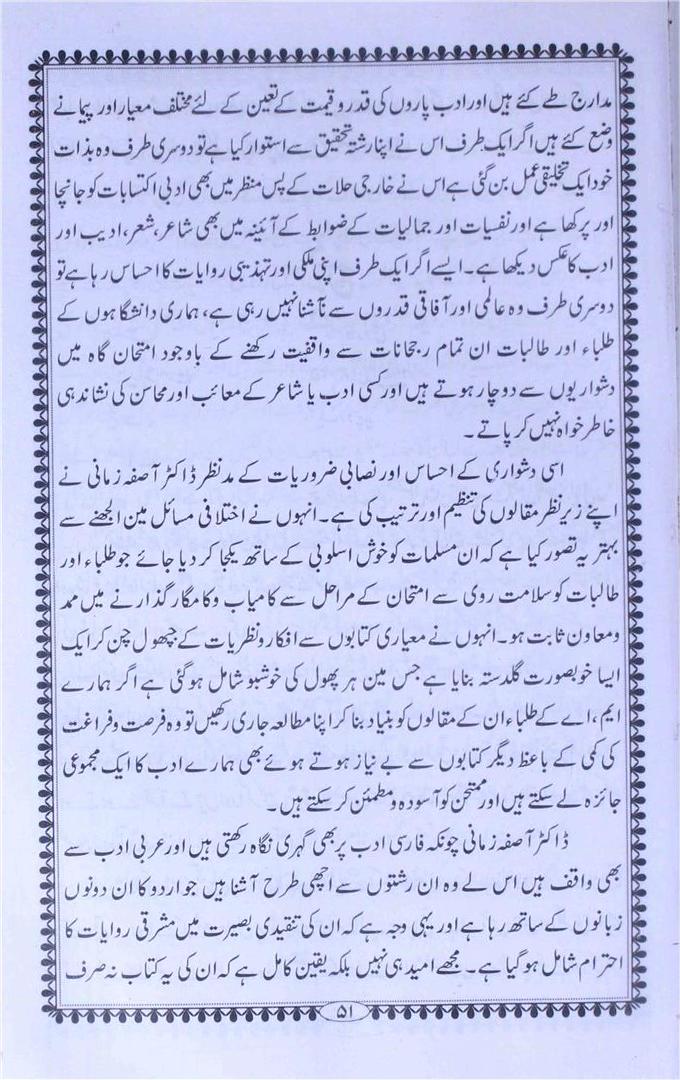 مدارج طے کئے ہیں اور ادب پاروں کی قدر و قیمت کے تعین کے لئے مختلف معیار اور پیمانے
وضع کئے ہیں اگر ایک طرف اس نے اپنا رشتہ تحقیق سے استوار کیا ہے تو دوسری طرف وہ بذات
خود ایک تخلیقی عمل بن گئی ہے اس نے خارجی حلات کے پس منظر میں بھی ادبی اکتسابات کو جانچا
اور پرکھا ہے اور نفسیات اور جمالیات کے ضوابط کے آئینہ میں بھی شاعر، شعر، ادیب اور
ادب کا عکس دیکھا ہے۔ ایسے اگر ایک طرف اپنی ملکی اور تہذیبی روایات کا احساس رہا ہے تو
دوسری طرف وہ عالمی اور آفاقی قدروں سے نآشنا نہیں رہی ہے، ہماری دانشگاہوں کے
طلباء اور طالبات ان تمام رجحانات سے واقفیت رکھنے کے باوجود امتحان گاہ میں
دشواریوں سے دوچار ہوتے ہیں اور کسی ادب یا شاعر کے معائب اور محاسن کی نشاندہی
خاطر خواہ نہیں کر پاتے۔
اسی دشواری کے احساس اور نصابی ضروریات کے مدنظر ڈاکٹر آصفہ زمانی نے
اپنے زیر نظر مقالوں کی تنظیم اور ترتیب کی ہے۔ انہوں نے اختلافی مسائل مین الجھنے سے
بہتر یہ تصور کیا ہے کہ ان مسلمات کو خوش اسلوبی کے ساتھ یکجا کر دیا جائے جو طلباء اور
طالبات کو سلامت روی سے امتحان کے مراحل سے کامیاب و کامگار گذارنے میں ممد
و معاون ثابت ہو۔ انہوں نے معیاری کتابوں سے افکار و نظریات کے چھول چن کر ایک
ایسا خوبصورت گلدستہ بنایا ہے جس مین ہر پھول کی خوشبو شامل ہو گئی ہے اگر ہمارے
ایم، اے کے طلباء ان کے مقالوں کو بنیاد بنا کر اپنا مطالعہ جاری رکھیں تو وہ فرصت و فراغت
کی کمی کے باعظ دیگر کتابوں سے بے نیاز ہوتے ہوئے بھی ہمارے ادب کا ایک مجموعی
جائزہ لے سکتے ہیں اور ممتحن کو آسودہ و مطمئن کر سکتے ہیں۔
ڈاکٹر آصفہ زمانی چونکہ فارسی ادب پر بھی گہری نگاہ رکھتی ہیں اور عربی ادب سے
بھی واقف ہیں اس لے وہ ان رشتوں سے اچھی طرح آشنا ہیں جو اردو کا ان دونوں
زبانوں کے ساتھ رہا ہے اور یہی وجہ ہے کہ ان کی تنقیدی بصیرت میں مشرقی روایات کا
احترام شامل ہو گیا ہے۔ مجھے امید ہی نہیں بلکہ یقین کامل ہے کہ ان کی یہ کتاب نہ صرف
۵۱